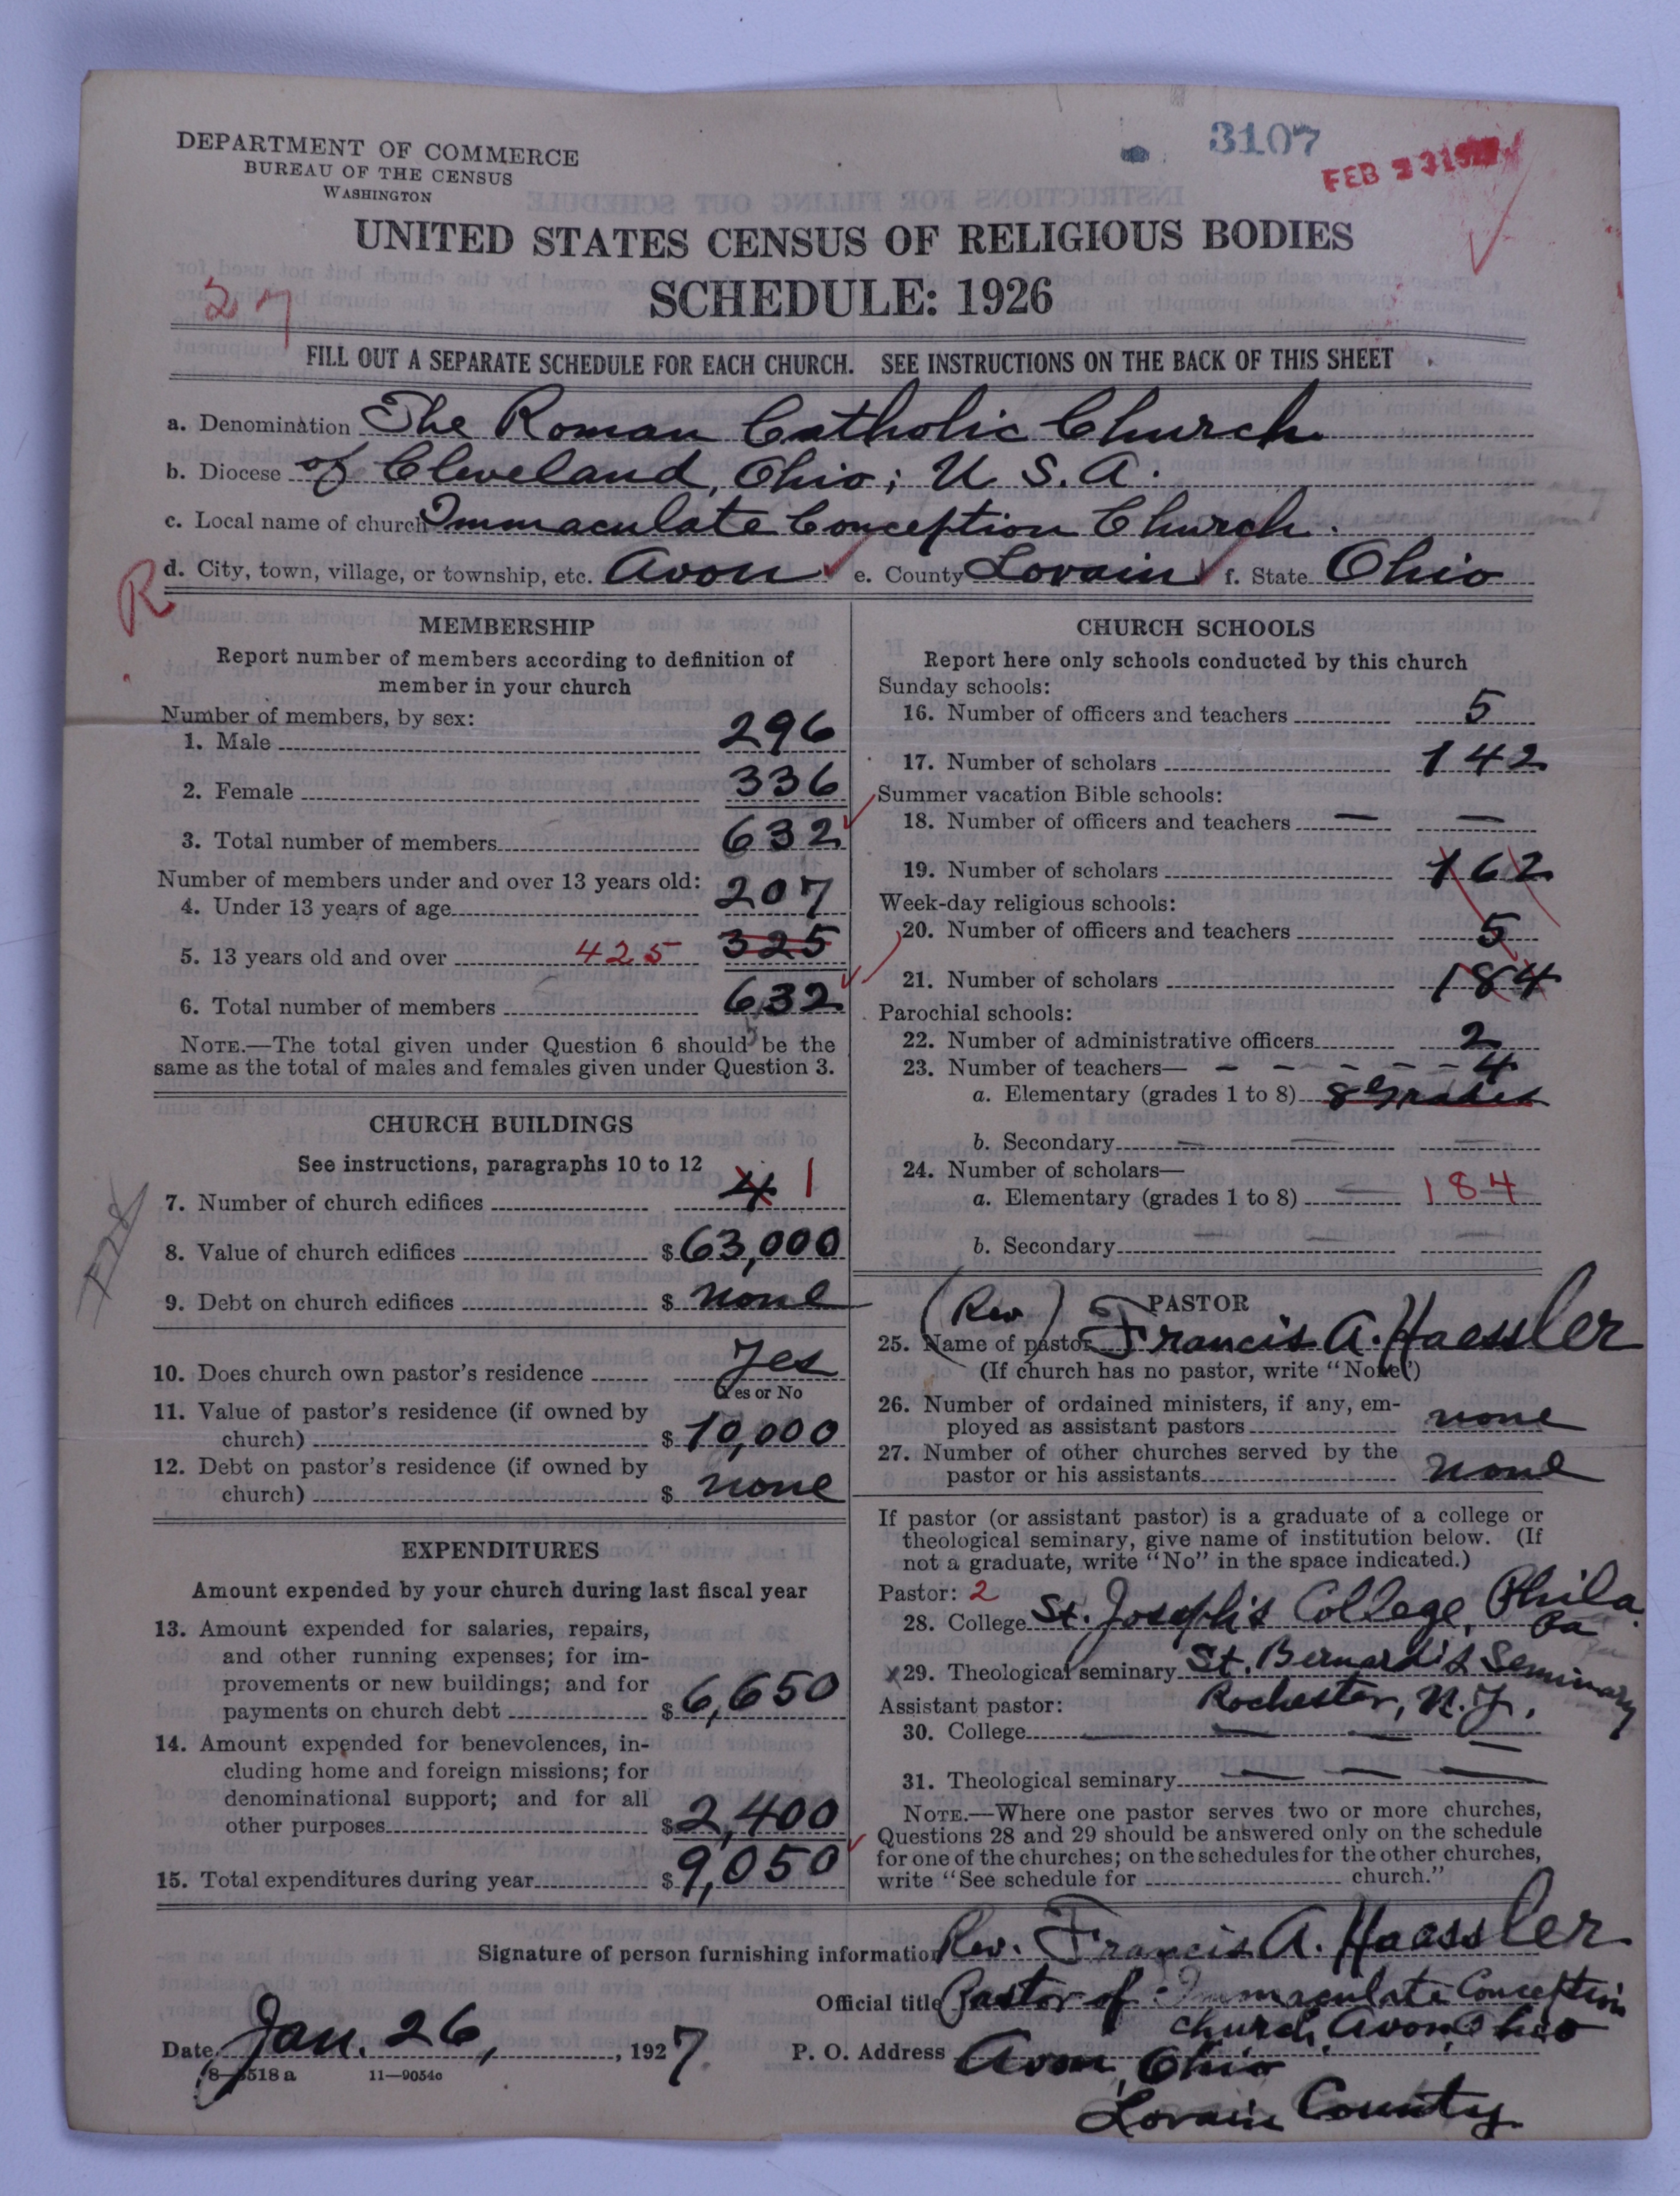 3107
FEB
DEPARTMENT OF COMMERCE
BUREAU OF THE CENSUS
WASHINGTON
UNITED STATES CENSUS OF RELIGIOUS BODIES
SCHEDULE: 1926
27
FILL OUT A SEPARATE SCHEDULE FOR EACH CHURCH. SEE INSTRUCTIONS ON THE BACK OF THIS SHEET
a. Denomination The Roman Catholic Church
b. Diocese of Cleveland, Ohio; U. S. A.
c. Local name of church Immaculate Conception Church.
d. City, town, village, or township, etc. Avon e. County Lorain f. State Ohio
R
MEMBERSHIP
Report number of members according to definition of
member in your church
Number of members, by sex:
1. Male 296
2. Female 336
3. Total number of members 632
Number of members under and over 13 years old:
4. Under 13 years of age 207
5. 13 years old and over 425 325
6. Total number of members 632
NOTE.—The total given under Question 6 should be the
same as the total of males and females given under Question 3.
CHURCH BUILDINGS
See instructions, paragraphs 10 to 12
7. Number of church edifices 4 1
8. Value of church edifices $ 63,000
9. Debt on church edifices $ none
10. Does church own pastor's residence Yes
Yes or No
11. Value of pastor's residence (if owned by
church) $ 10,000
12. Debt on pastor's residence (if owned by
church) $ none
EXPENDITURES
Amount expended by your church during last fiscal year
13. Amount expended for salaries, repairs,
and other running expenses; for im-
provements or new buildings; and for
payments on church debt $ 6,650
14. Amount expended for benevolences, in-
cluding home and foreign missions; for
denominational support; and for all
other purposes $ 2,400
15. Total expenditures during year $ 9,050
CHURCH SCHOOLS
Report here only schools conducted by this church
Sunday schools:
16. Number of officers and teachers 5
17. Number of scholars 142
Summer vacation Bible schools:
18. Number of officers and teachers — —
19. Number of scholars 162
Week-day religious schools:
20. Number of officers and teachers 5
21. Number of scholars 184
Parochial schools:
22. Number of administrative officers 2
23. Number of teachers— - - - - - 4
a. Elementary (grades 1 to 8) 8 Grades
b. Secondary — — —
24. Number of scholars—
a. Elementary (grades 1 to 8) — 184
b. Secondary — — —
PASTOR
25. (Rev) Name of pastor Francis A. Haessler
(If church has no pastor, write "None")
26. Number of ordained ministers, if any, em-
ployed as assistant pastors none
27. Number of other churches served by the
pastor or his assistants none
If pastor (or assistant pastor) is a graduate of a college or
theological seminary, give name of institution below. (If
not a graduate, write "No" in the space indicated.)
Pastor: 2
28. College St. Joseph's College, Phila
Pa
x29. Theological seminary St. Bernard's Seminary
Assistant pastor: Rochester, N.Y.
30. College — — —
31. Theological seminary — — —
NOTE.—Where one pastor serves two or more churches,
Questions 28 and 29 should be answered only on the schedule
for one of the churches; on the schedules for the other churches,
write "See schedule for church."
Signature of person furnishing information Rev. Francis A. Haessler
Official title Pastor of Immaculate Conception
church, Avon, Ohio
Date Jan. 26, , 1927. P. O. Address Avon, Ohio
Lorain County
8—518a 11—9054c